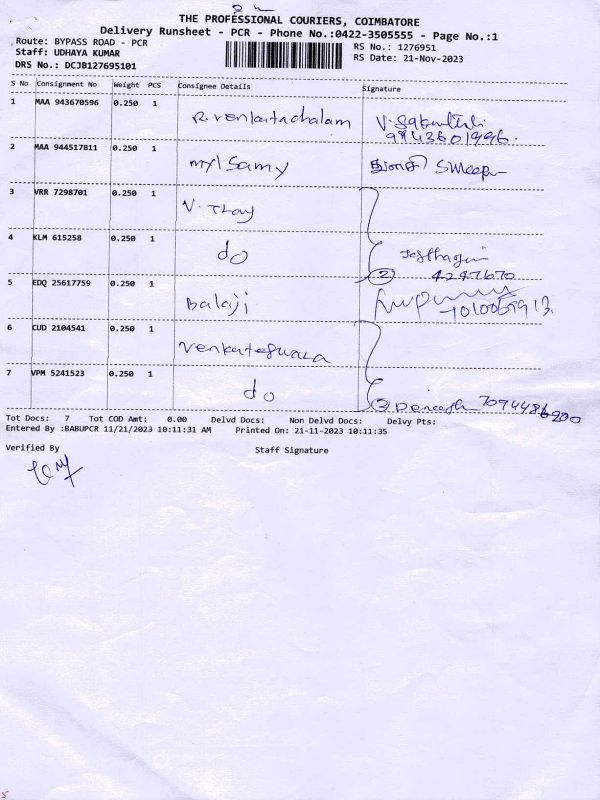 THE PROFESSIONAL COURIERS, COIMBATORE
Delivery Runsheet - PCR - Phone No.:0422-3505555 - Page No.:1
Route: BYPASS ROAD - PCR
Staff: UDHAYA KUMAR
DRS No.: DCJB127695101
RS No.: 1276951
RS Date: 21-Nov-2023
S No Consignment No Weight PCS Consignee Details Signature
1 MAA 943670596 0.250 1 R. Venkatachalam
9943601996
2 MAA 944517811 0.250 1 Mylsamy
3 VRR 7298701 0.250 1 V. Thay
4 KLM 615258 0.250 1 do
② 4247670
5 EDQ 25617759 0.250 1 Balaji
6 CUD 2104541 0.250 1 Venkateswara
7 VPM 5241523 0.250 1 do
② Dineash
Tot Docs: 7 Tot COD Amt: 0.00 Delvd Docs: Non Delvd Docs: Delvy Pts:
Entered By :BABUPCR 11/21/2023 10:11:31 AM Printed On: 21-11-2023 10:11:35
Verified By Staff Signature
5